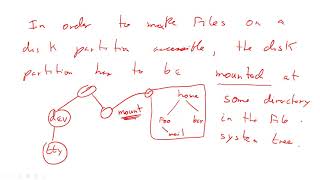 In order to make files on a
disk partition accessible, the disk
partition has to be mounted at
some directory
in the file
system tree.
home
dev
mount
foo bar
mail
tty